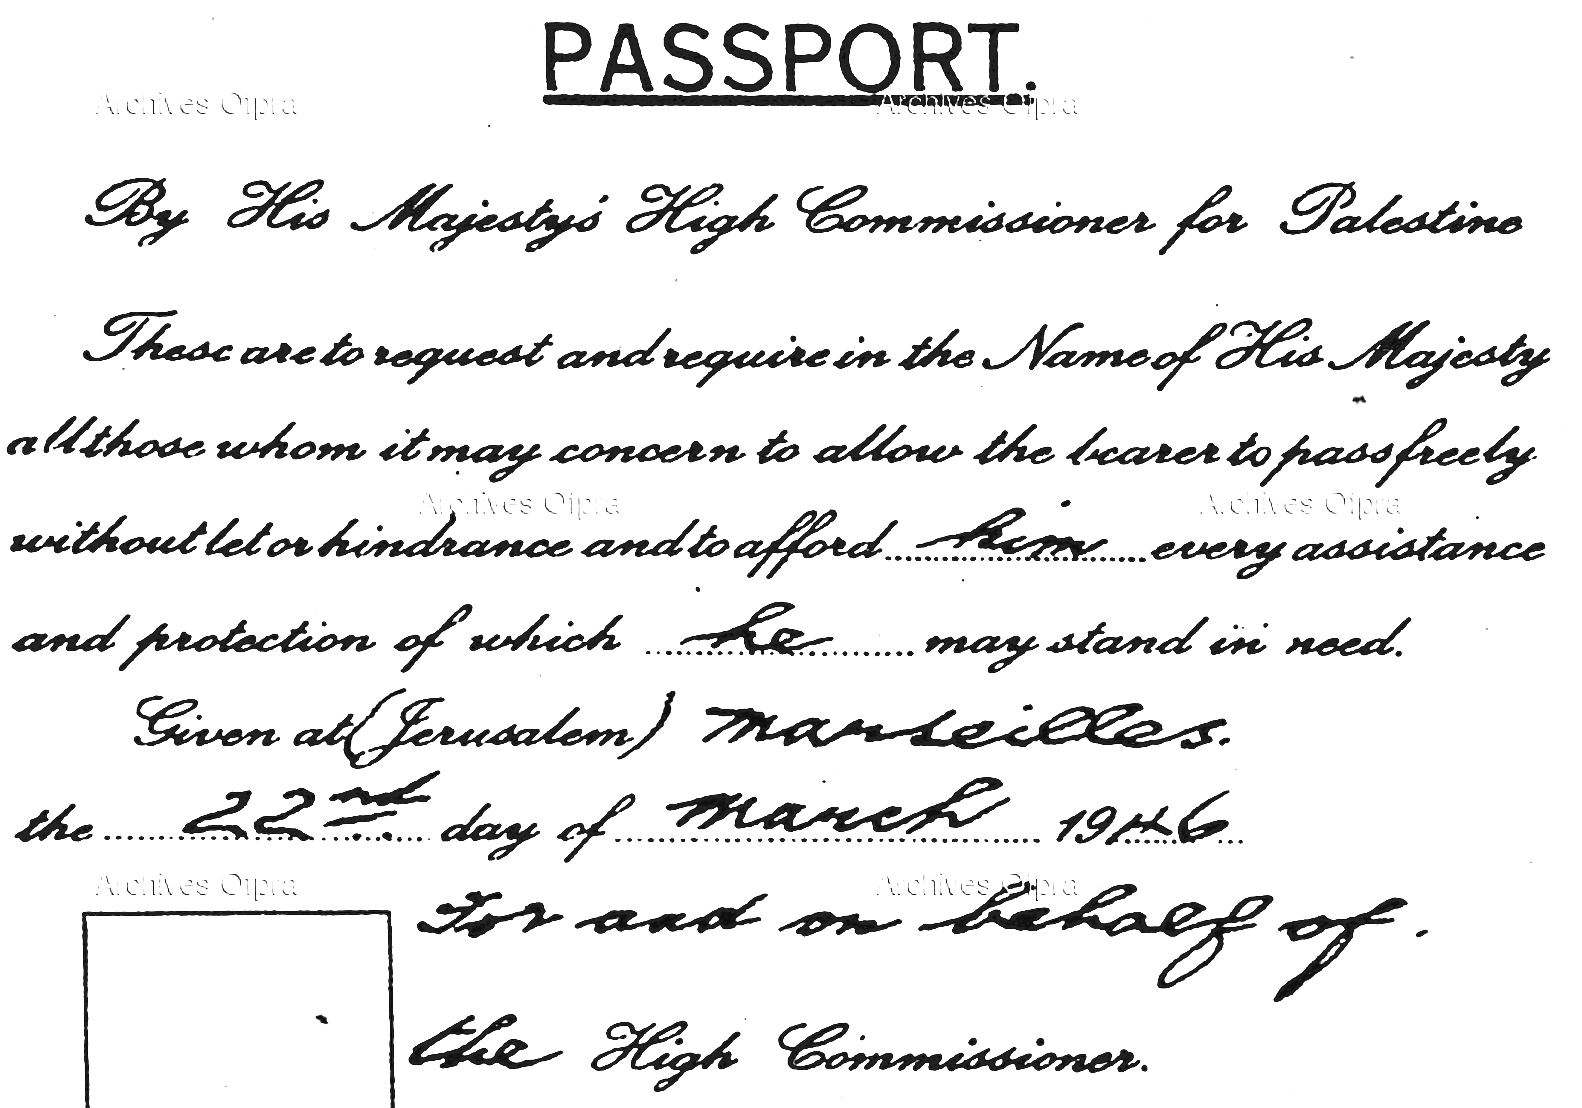 PASSPORT.
Archives Ofpra Archives Ofpra
By His Majesty's High Commissioner for Palestine
These are to request and require in the Name of His Majesty
all those whom it may concern to allow the bearer to pass freely
Archives Ofpra Archives Ofpra
without let or hindrance and to afford him every assistance
and protection of which he may stand in need.
Given at (Jerusalem) Marseilles.
the 22nd day of March 1946
Archives Ofpra Archives Ofpra
For and on behalf of.
the High Commissioner.